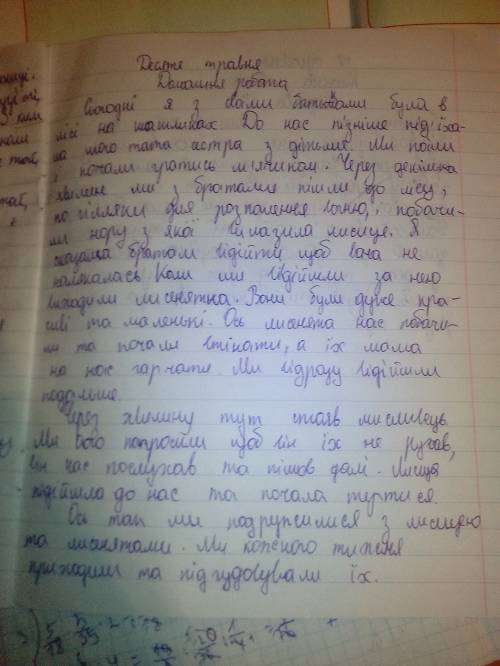 Десяте травня
Домашня робота
Сьогодні я з своїми батьками була в
лісі на шашликах. До нас пізніше під'їха-
ла мого тата сестра з дітьми. Ми поїли
і почали гратись м'ячиком. Через декілька
хвилин ми з братами пішли до лісу,
по гілляки для розпалення вогню, побачи-
ли нору з якої вилазила лисиця. Я
сказала братам відійти щоб вона не
налякалась. Коли ми відійшли за нею
виходили лисенятка. Вони були дуже кра-
сиві та маленькі. Ось лисенята нас побачи-
ли та почали втікати, а їх мама
на нас гарчати. Ми відразу відійшли
подальше.
Через хвилину тут стояв мисливець.
Ми його попросили щоб він їх не рухав,
він нас послухав та пішов далі. Лисиця
підійшла до нас та почала тертися.
Ось так ми подружилися з лисицею
та лисенятами. Ми кожного тижня
приходили та підгудовували їх.